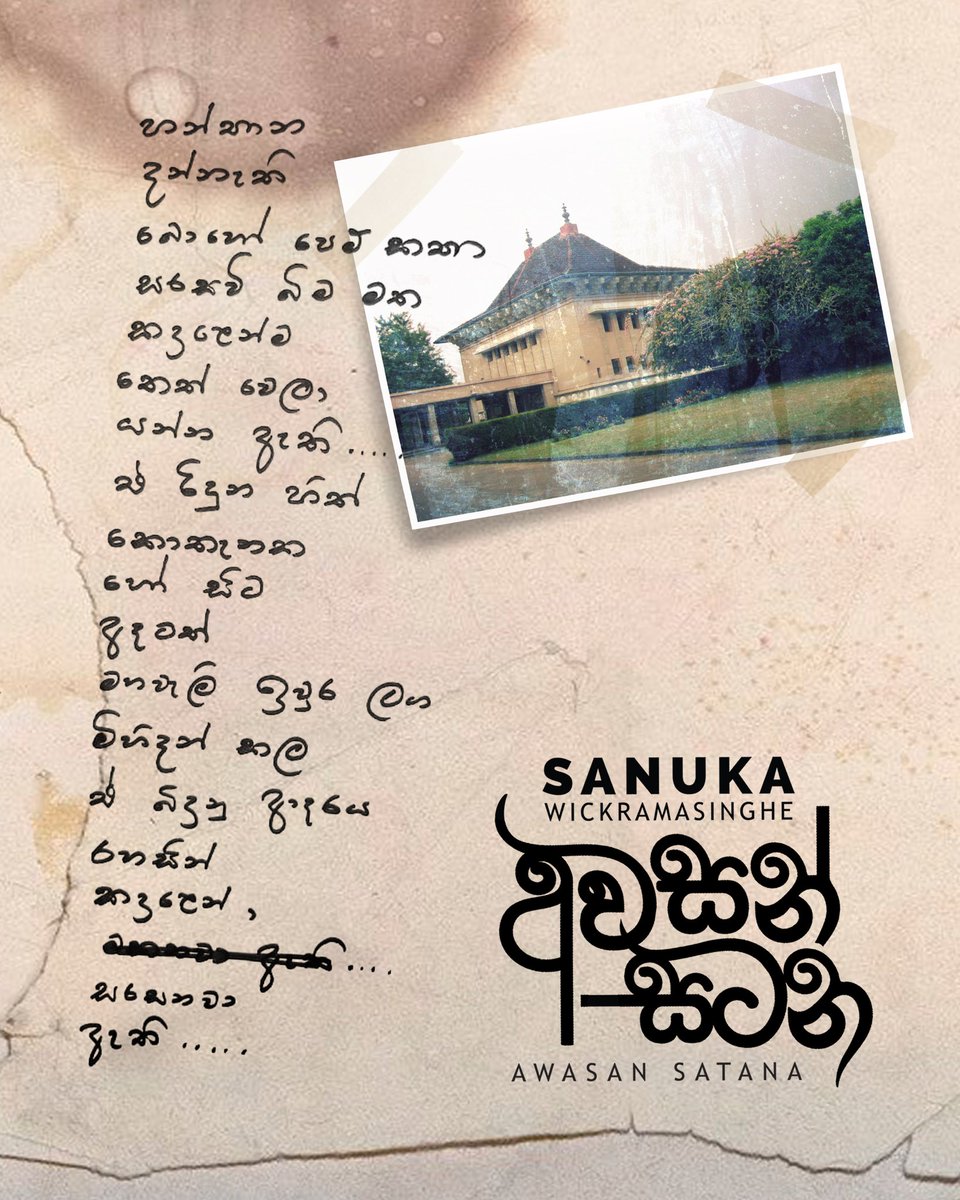 හන්තාන
දන්නෑති
බොහෝ පෙම් කතා
සරසවි බිම මත
කදුළෙන්ම
තෙත් වෙලා
යන්න ඇති.....
ඒ රිදුන හිත්
කොතැනක
හෝ සිට
අදටත්
මහවැලි ඉවුර ලග
මිහිදන් කල
ඒ බිදුනු ආදරය
රහසින්
කදුළෙන්,
ඇති....
සරසනවා
ඇති.....
SANUKA
WICKRAMASINGHE
අවසන්
සටන
AWASAN SATANA